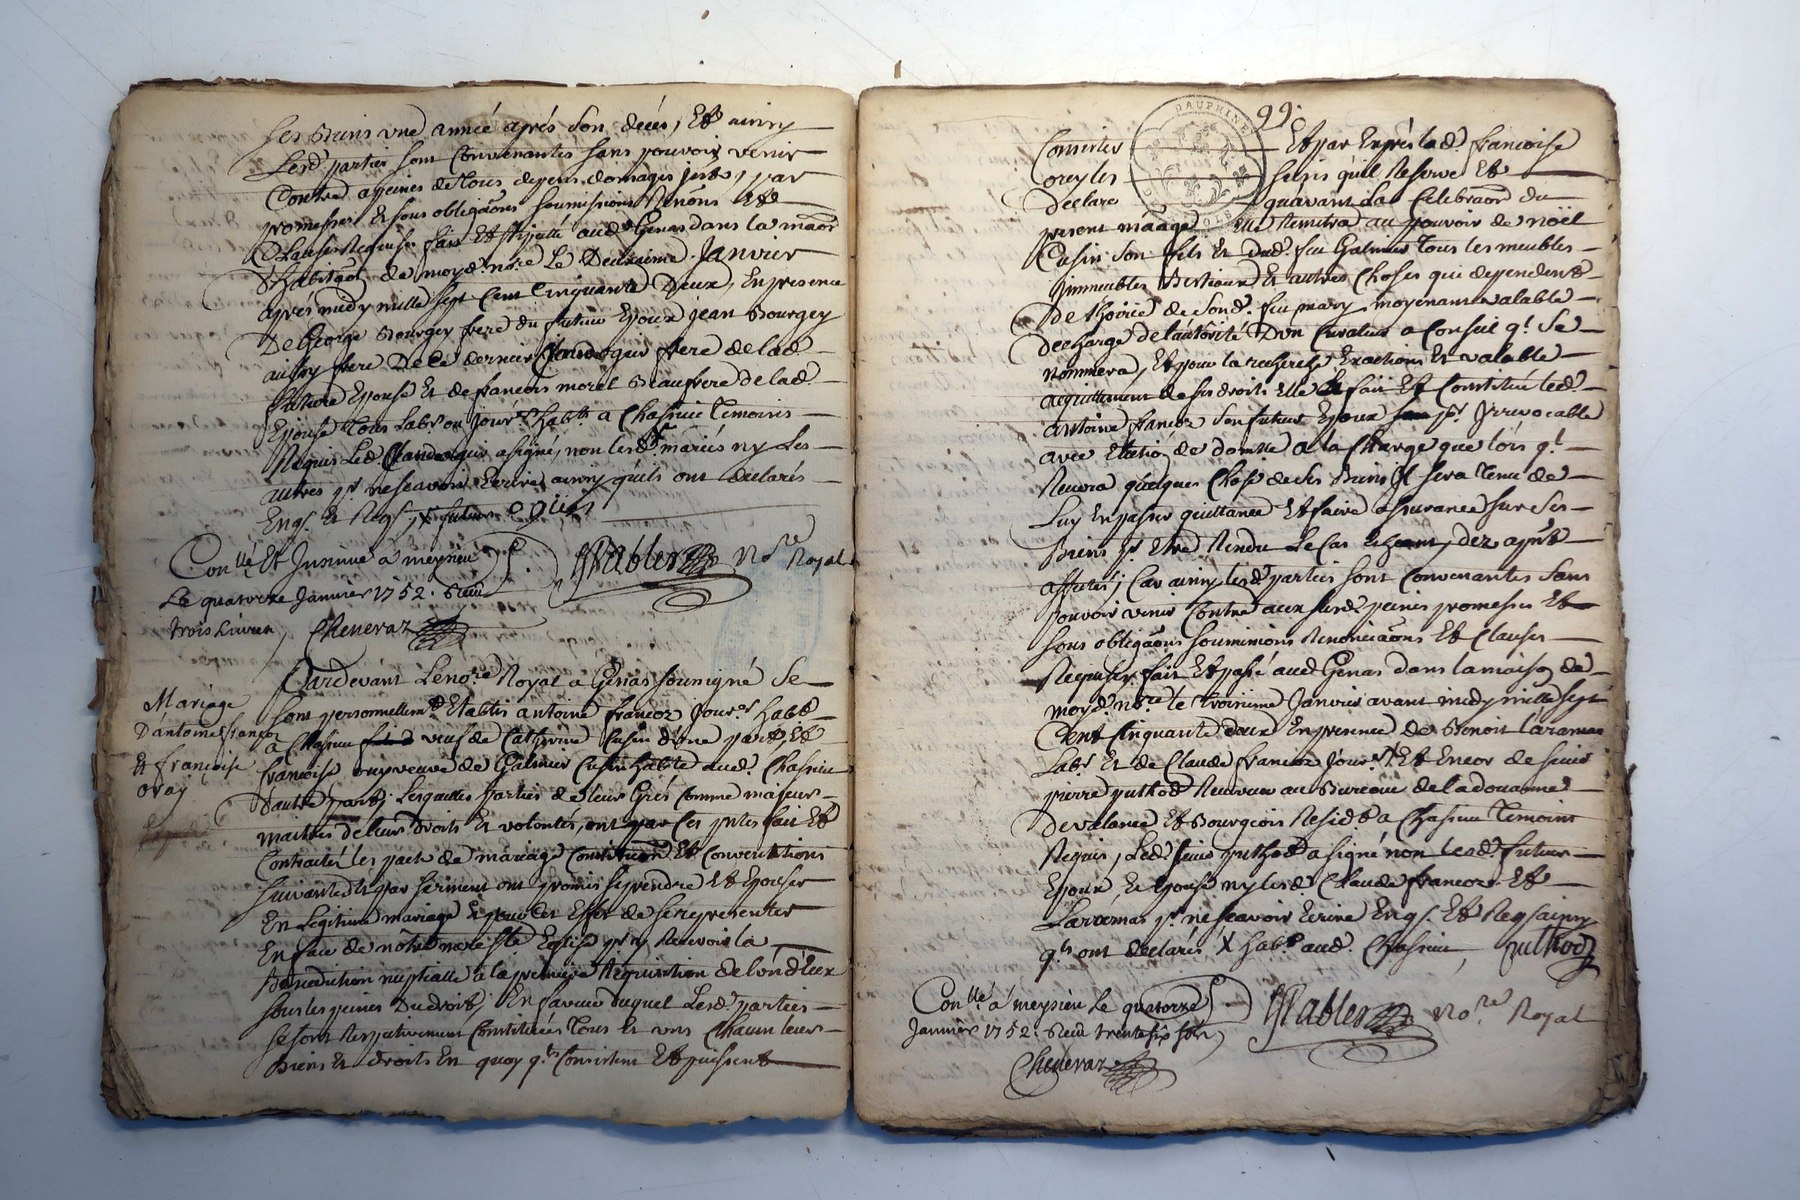 ses Biens une année aprés son décés, Et ainsy
Lesd. parties sont Convenantes sans pouvoir venir
Contre a peines de tous depens domages jnts, par
promesses Et sous obligaôns soumissions Renôns Et
Clauses Requises fait Et stipulé aud. Genas dans la maôn
d'habitaôn de moyd. nore Le Deuxieme Janvier
apres midy mille sept Cent Cinquante Deux, En presence
De George Bourgey frere du futur Epoux jean Bourgey
aussy frere De Ce dernier frere de lad.
future Epouse Et de francois morel Beaufrere de lad.
Epouse tous Labr ou Jourrs habts a Chassieu Temoins
Requis Led. a signé, non lesd. mariés ny Les
autres pr ne scavoir Ecrire ainsy qu'ils ont declarés
Enqs. Et Reqs.
Conllé Et Jnsinué a meysieu
Le quatorze Janvier 1752. Receu
trois Livres
Chenevaz
Nore Royal
Pardevant Le nore Royal a Genas soussigné se
sont personnellemt Etablis antoine francoz Jourr habt
a Chassieu veuf de Catherine Cusin d'une part, Et
francoise oray veuve de Galmier Cusin habte aud. Chassieu
d'autre part; Lesquelles parties de leurs Grés Comme majeurs
maitres de leurs droits Et volontés, ont par Ces pntes fait Et
Contractés les pacts de mariage Constituôn Et Conventions
suivantes Et par serment ont promis se prendre Et Epouser
En Legitime mariage Et pour Cet Effet de se representer
En face de nôtre mere ste Eglise pr y Recevoir la
Benediction nuptialle a la premiere Requisition de l'un d'Eux
sous les peines Du droit; En faveur duquel Lesd. parties
se sont Respectivement Constituées Tous Et uns Chacun leurs
Biens Et droits En quoy qls Consistent Et puissent
Mariage
D'antoine francoz
Et francoise
oray
99.
DAUPHINE
Consister Et par Exprès lad. francoise
oray les siens qu'il Reserve Et
declare qu'avant La Celebraôn du
present mâage Elle Remettra au pouvoir de noël
Cusin son fils Et dud. feu Galmier tous les meubles
Jmmeubles Bestiaux Et autres Choses qui dependent
De l'hoirie de sond. feu mary, moyenant valable
decharge de l'autôrité D'un Curateur a Conseil ql. se
nommera, Et pour la recherche Exaction Et valable
acquittement de ses droits Elle fait Et Constitué led.
antoine francoz son futur Epoux pr. Jrrevocable
avec Election de domlle a la Charge que lors ql.
Recevra quelques Chose de ses Biens Jl sera tenu de
Luy En passer quittance Et faire assurance sur ses
Biens pr Etre Rendu Le Cas
Car ainsy lesd. parties sont Convenantes sans
pouvoir venir Contre aux susd. peines promesses Et
sous obligaôns soumissions Renonciaôns Et Clauses
Requises fait Et passé aud. Genas dans la maison de
moyd. nore le troisieme Janvier avant midy mille sept
Cent Cinquante deux En presence de Benoit Laramas
Labr. Et de Claude francoz Jourr. Et Encor de sieur
pierre puthod Receveur au Bureau de la doüanne
De valance Et Bourgeois Resid. a Chassieu Temoins
Requis, Led. sieur puthod a signé non lesd. futurs
Epoux Et Epouse ny lesd. Claude francoz Et
Laramas pr. ne scavoir Ecrire Enqs. Et Reqs ainsy
qls ont declarés, X habts aud. Chassieu, puthod
Conllé a meysieu Le quatorze
Janvier 1752. Receu trente six sols
Chenevaz
Nore Royal